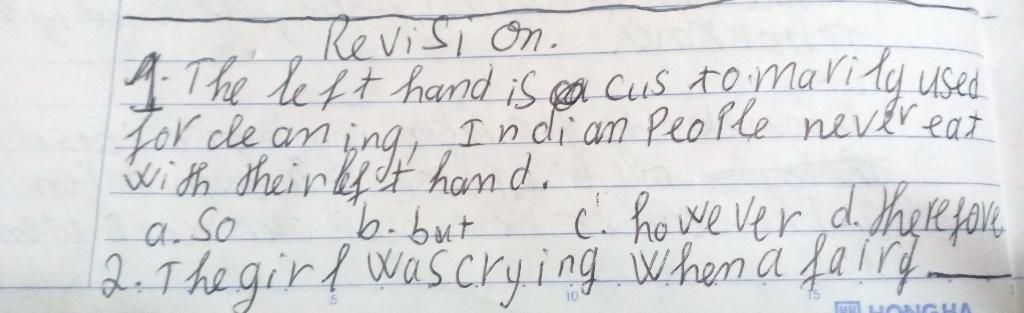 Revision.
1. The left hand is customarily used
for cleaning, Indian people never eat
with their left hand.
a. so b. but c. however d. therefore
2. The girl was crying when a fairy ____
5 10 15
HONGHA